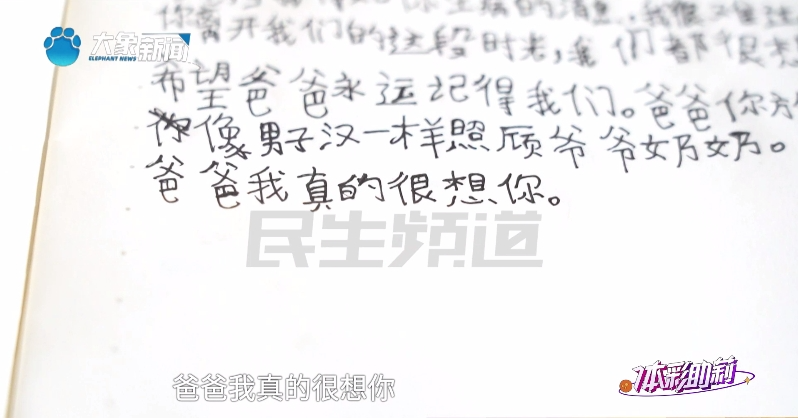 大象新闻
ELEPHANT NEWS
你生病的消息,我很
你离开我们的这段时光,我们都很想
希望爸爸永远记得我们。爸爸你
你像男子汉一样照顾爷爷奶奶。
爸爸我真的很想你。
民生频道
爸爸我真的很想你
体彩助新